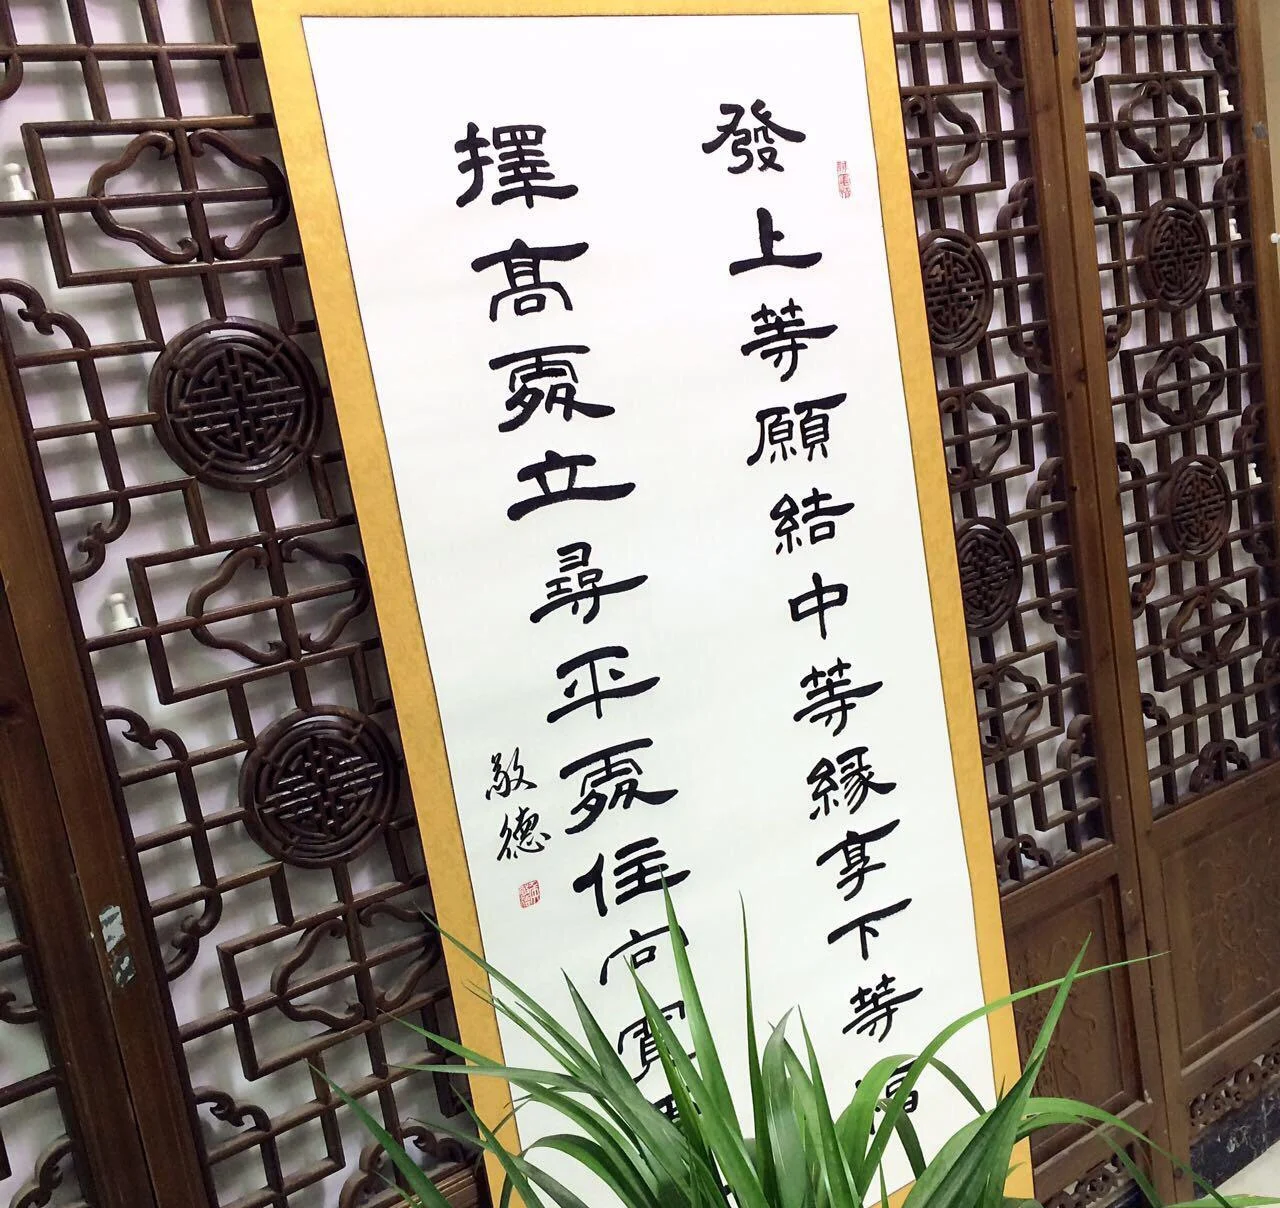 發上等願結中等緣享下等福
擇高處立尋平處住向寬
敬德